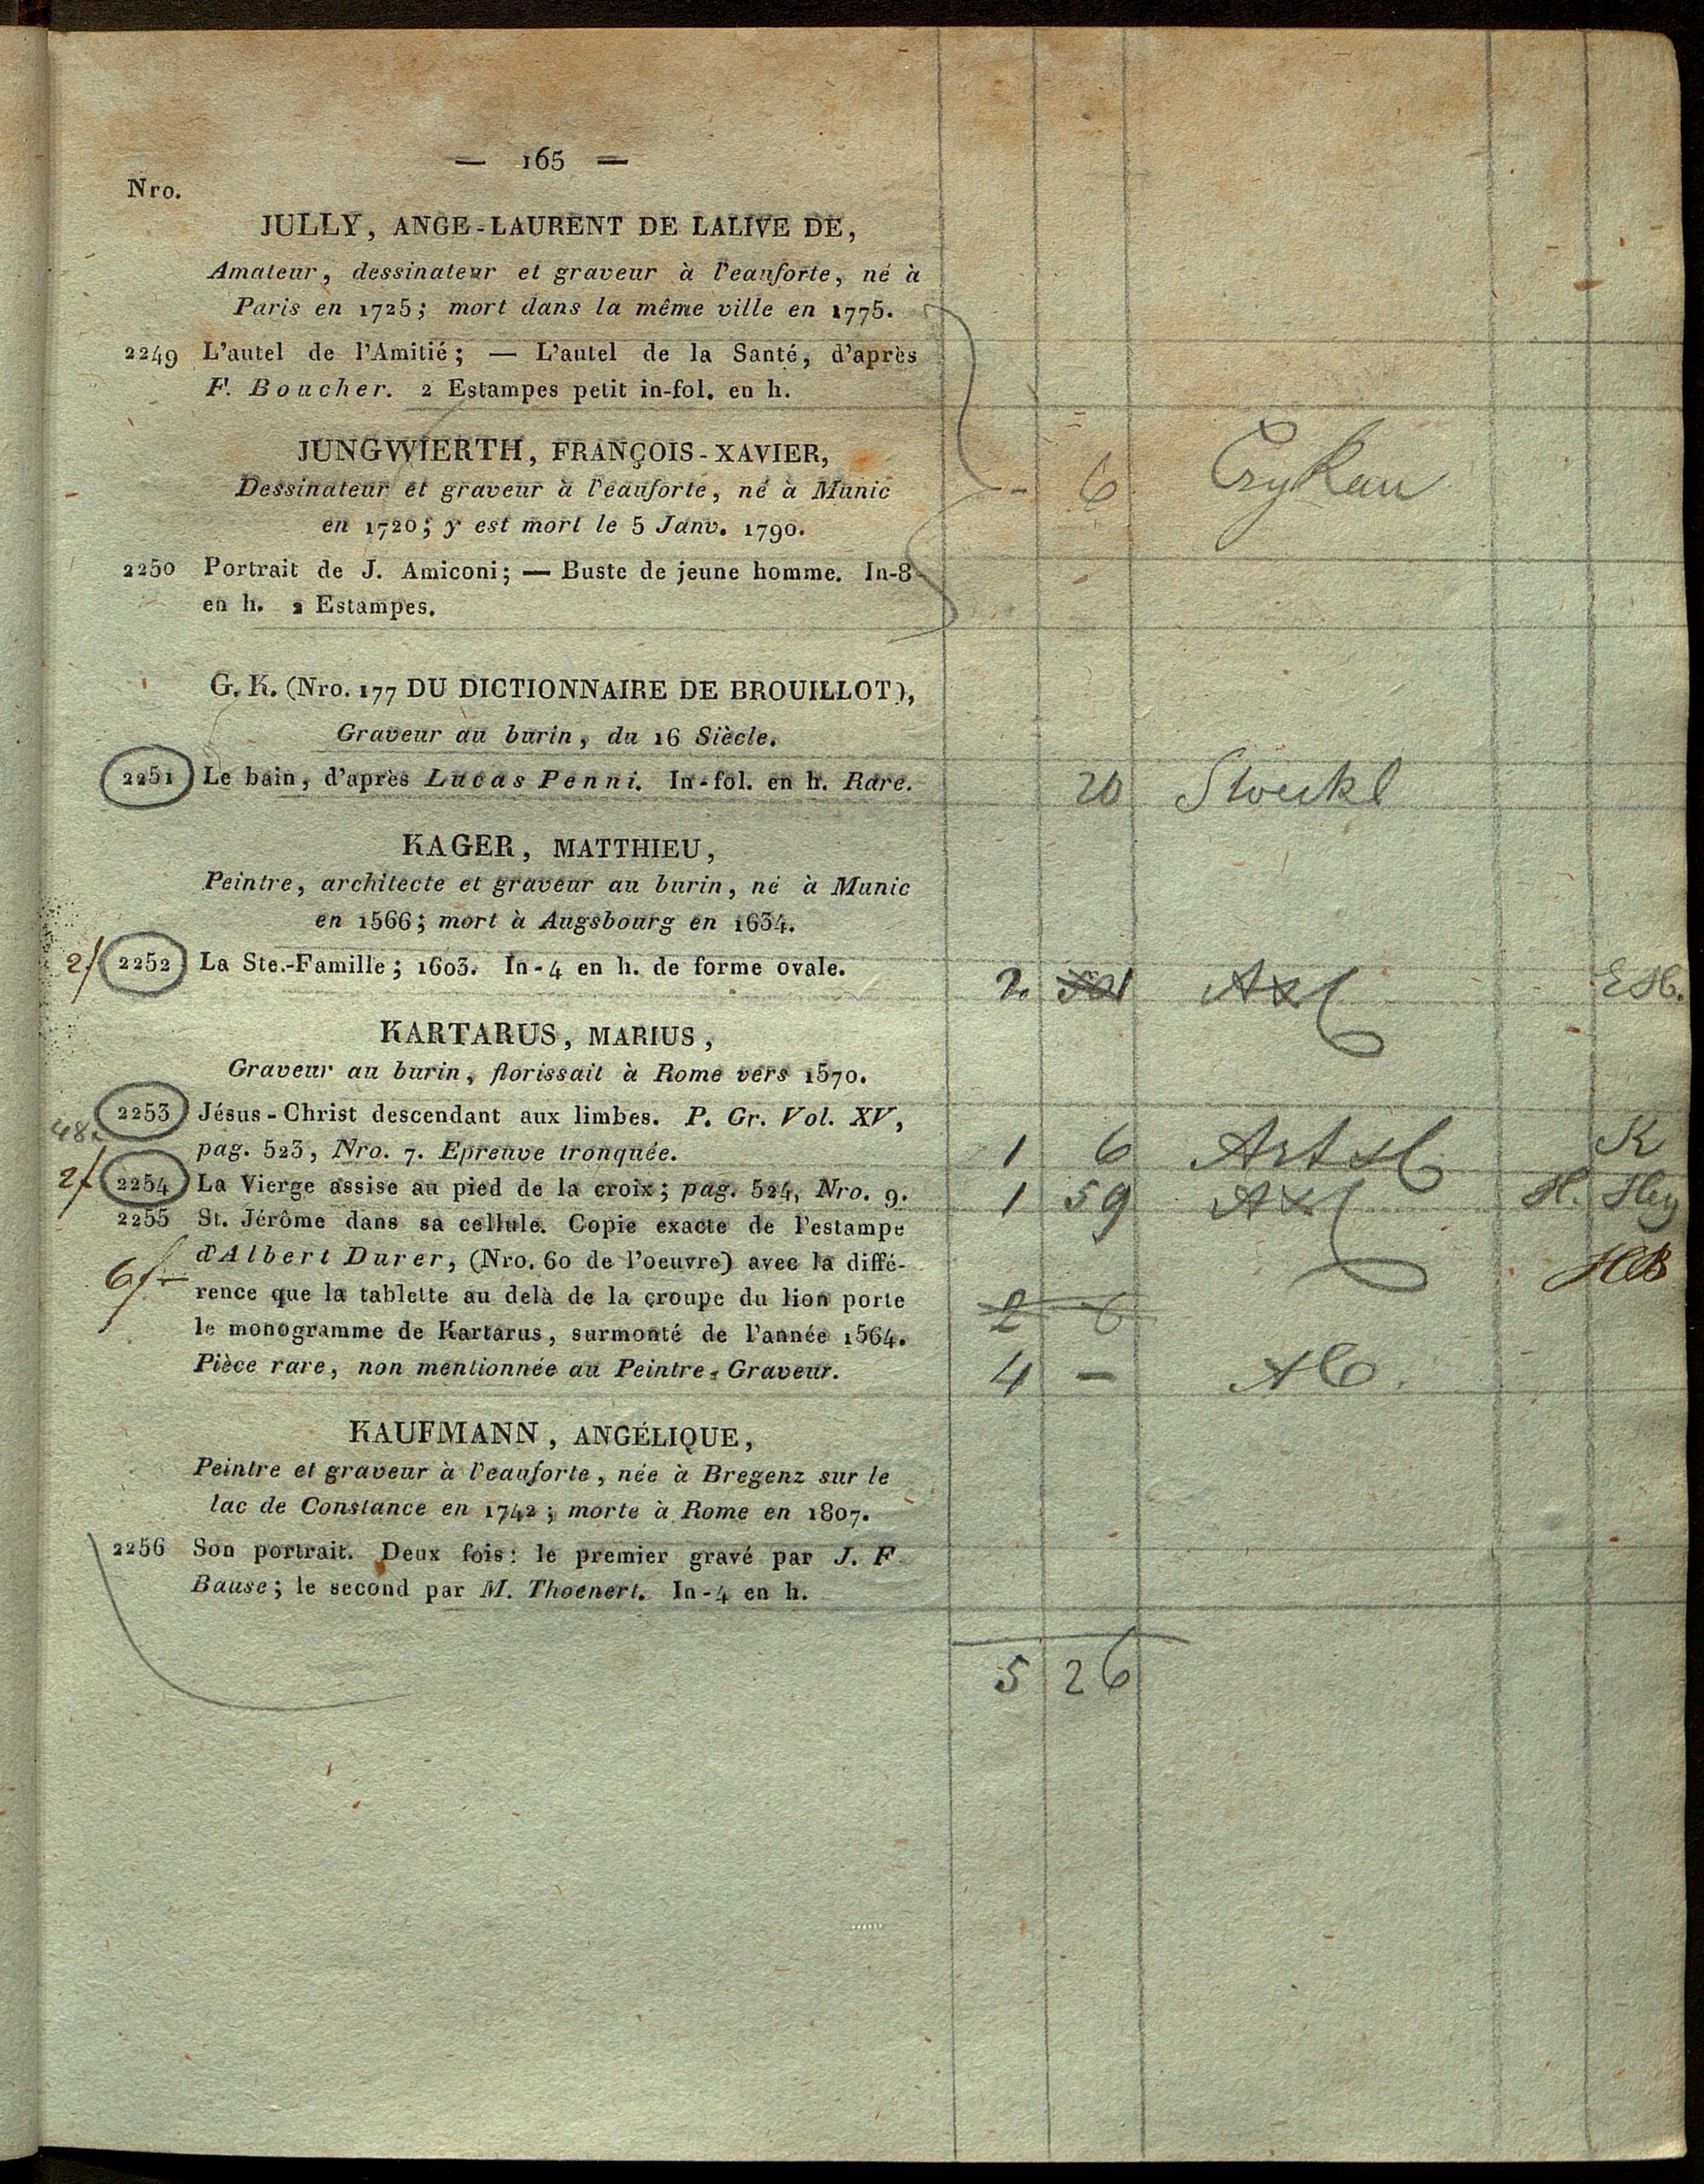 — 165 —
Nro.
JULLY, ANGE-LAURENT DE LALIVE DE,
Amateur, dessinateur et graveur à l'eauforte, né à
Paris en 1725; mort dans la même ville en 1775.
2249 L'autel de l'Amitié; — L'autel de la Santé, d'après
F. Boucher. 2 Estampes petit in-fol. en h.
JUNGWIERTH, FRANÇOIS-XAVIER,
Dessinateur et graveur à l'eauforte, né à Munic
- 6
en 1720; y est mort le 5 Janv. 1790.
2250 Portrait de J. Amiconi; — Buste de jeune homme. In-8
en h. 2 Estampes.
G. K. (Nro. 177 DU DICTIONNAIRE DE BROUILLOT),
Graveur au burin, du 16 Siècle.
2251 Le bain, d'après Lucas Penni. In-fol. en h. Rare. 20 Stoeckl
KAGER, MATTHIEU,
Peintre, architecte et graveur au burin, né à Munic
en 1566; mort à Augsbourg en 1634.
2f 2252 La Ste.-Famille; 1603. In-4 en h. de forme ovale. 2.
KARTARUS, MARIUS,
Graveur au burin, florissait à Rome vers 1570.
2253 Jésus-Christ descendant aux limbes. P. Gr. Vol. XV,
48.
pag. 523, Nro. 7. Epreuve tronquée. 1 6 K
2f 2254 La Vierge assise au pied de la croix; pag. 524, Nro. 9. 1 59
2255 St. Jérôme dans sa cellule. Copie exacte de l'estampe
d'Albert Durer, (Nro. 60 de l'oeuvre) avec la diffé-
6f
rence que la tablette au delà de la croupe du lion porte 2 6
le monogramme de Kartarus, surmonté de l'année 1564.
Pièce rare, non mentionnée au Peintre-Graveur. 4 —
KAUFMANN, ANGÉLIQUE,
Peintre et graveur à l'eauforte, née à Bregenz sur le
lac de Constance en 1742; morte à Rome en 1807.
2256 Son portrait. Deux fois: le premier gravé par J. F.
Bause; le second par M. Thoenert. In-4 en h.
5 26